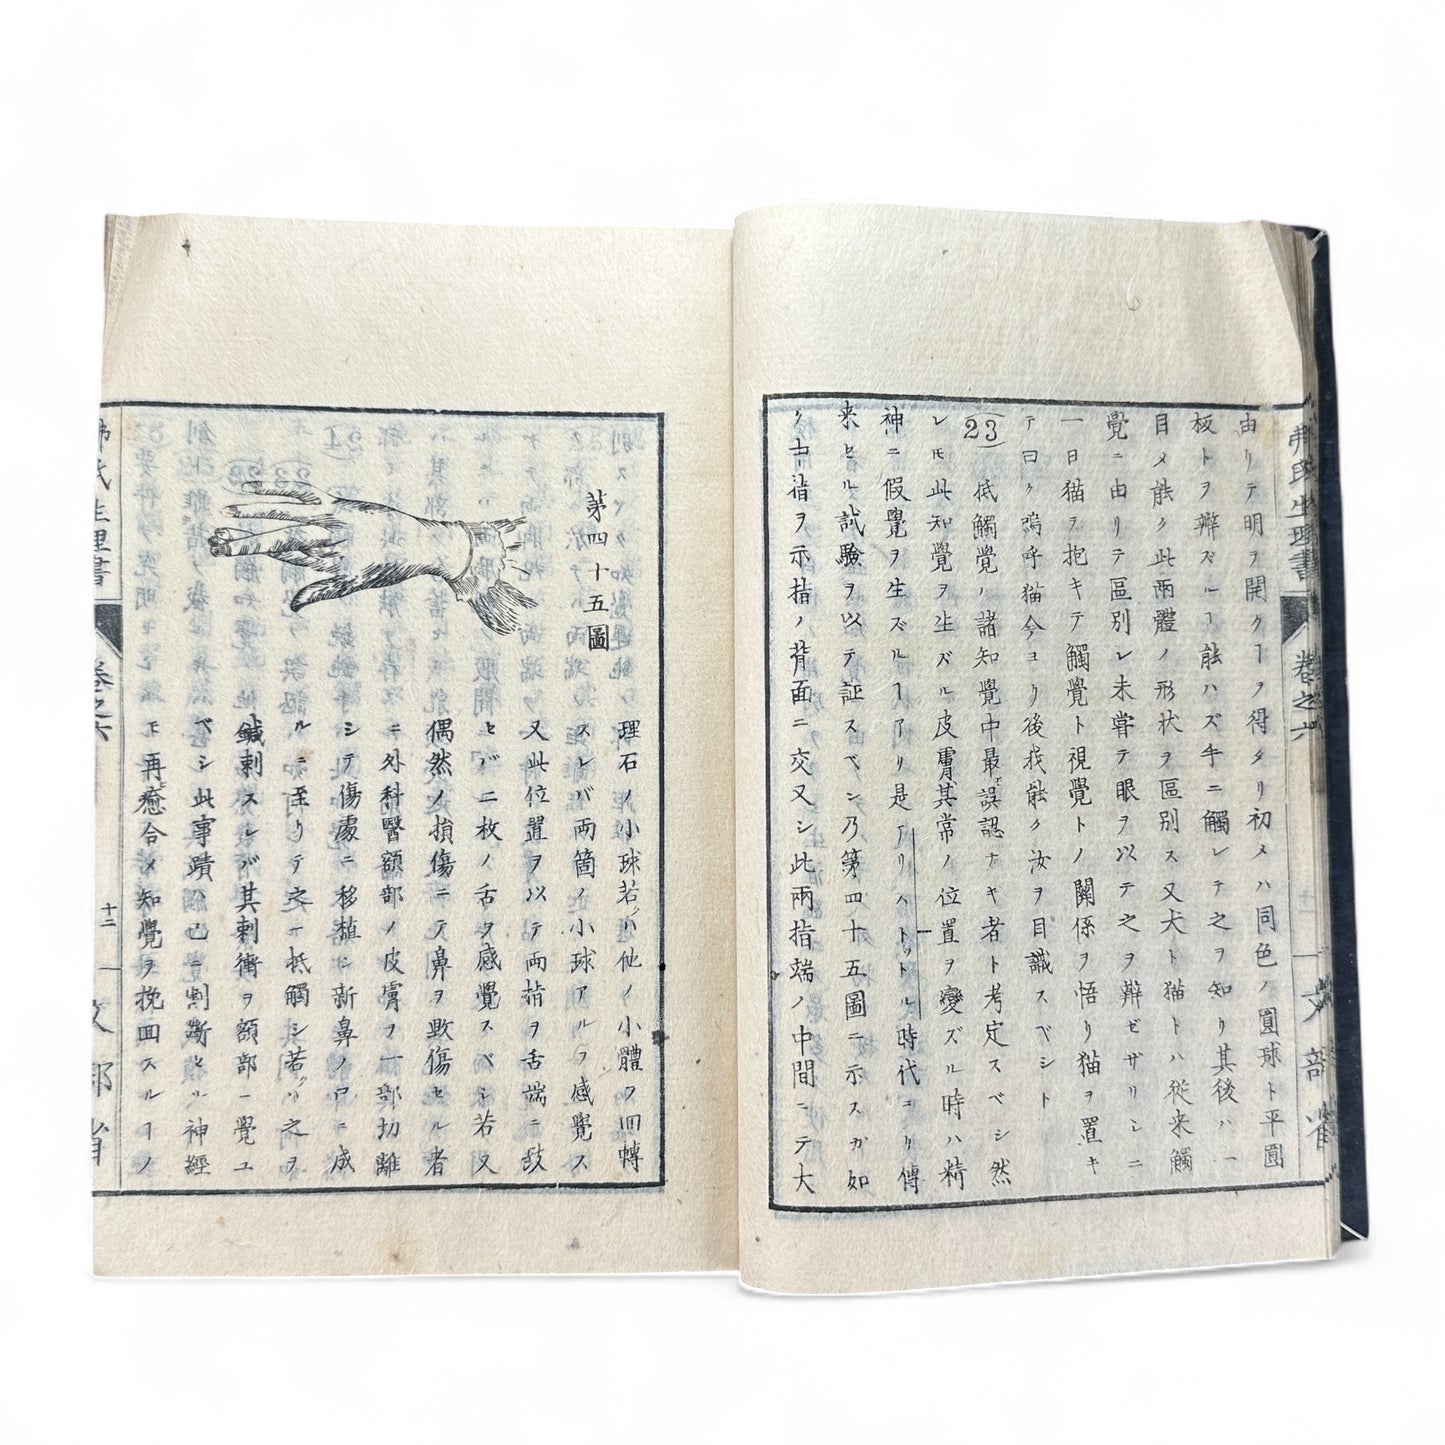 弗氏生理書
卷之六
文部省
由リテ明ヲ開クヿヲ得タリ初メハ同色ノ圓球ト平圓
板トヲ辨ズルヿ能ハズ手ニ觸レテ之ヲ知リ其後ハ一
目メ能ク此兩體ノ形状ヲ區別ス又犬ト猫トハ從来觸
覺ニ由リテ區別レ未嘗テ眼ヲ以テ之ヲ辨ゼザリシニ
一日猫ヲ抱キテ觸覺ト視覺トノ關係ヲ悟リ猫ヲ置キ
テ曰ク嗚呼猫今ヨリ後我能ク汝ヲ目識スベシト
23 抵觸覺ノ諸知覺中最誤認ナキ者ト考定スベシ然
レモ此知覺ヲ生バル皮膚其常ノ位置ヲ變ズル時ハ精
神ニ假覺ヲ生ズルヿアリ是アリストットル時代ニリ傳
来セル試驗ヲ以テ証スベシ乃第四十五圖ニ示スガ如
ク中指ヲ示指ノ背面ニ交叉シ此兩指端ノ中間ニテ大
第四十五圖
理石ノ小球若クハ他ノ小體ヲ回轉
スレバ兩箇ノ小球アルヲ感覺ス
又此位置ヲ以テ兩指ヲ舌端ニ鼓
セバ二枚ノ舌ヲ感覺スベシ若又
偶然ノ損傷ニテ鼻ヲ毀傷セル者
ニ外科醫額部ノ皮膚ヲ一部切離
シテ傷處ニ移植シ新鼻ノ尸ニ成
ルニ至リテ之ニ抵觸シ若クハ之ヲ
鍼刺スルバ其刺衝ヲ額部ニ覺ユ
ベシ此事蹟ハ觸已ニ割斷セル神經
モ再癒合メ知覺ヲ挽回スルヿノ
弗氏生理書
卷之六
十二
文部省